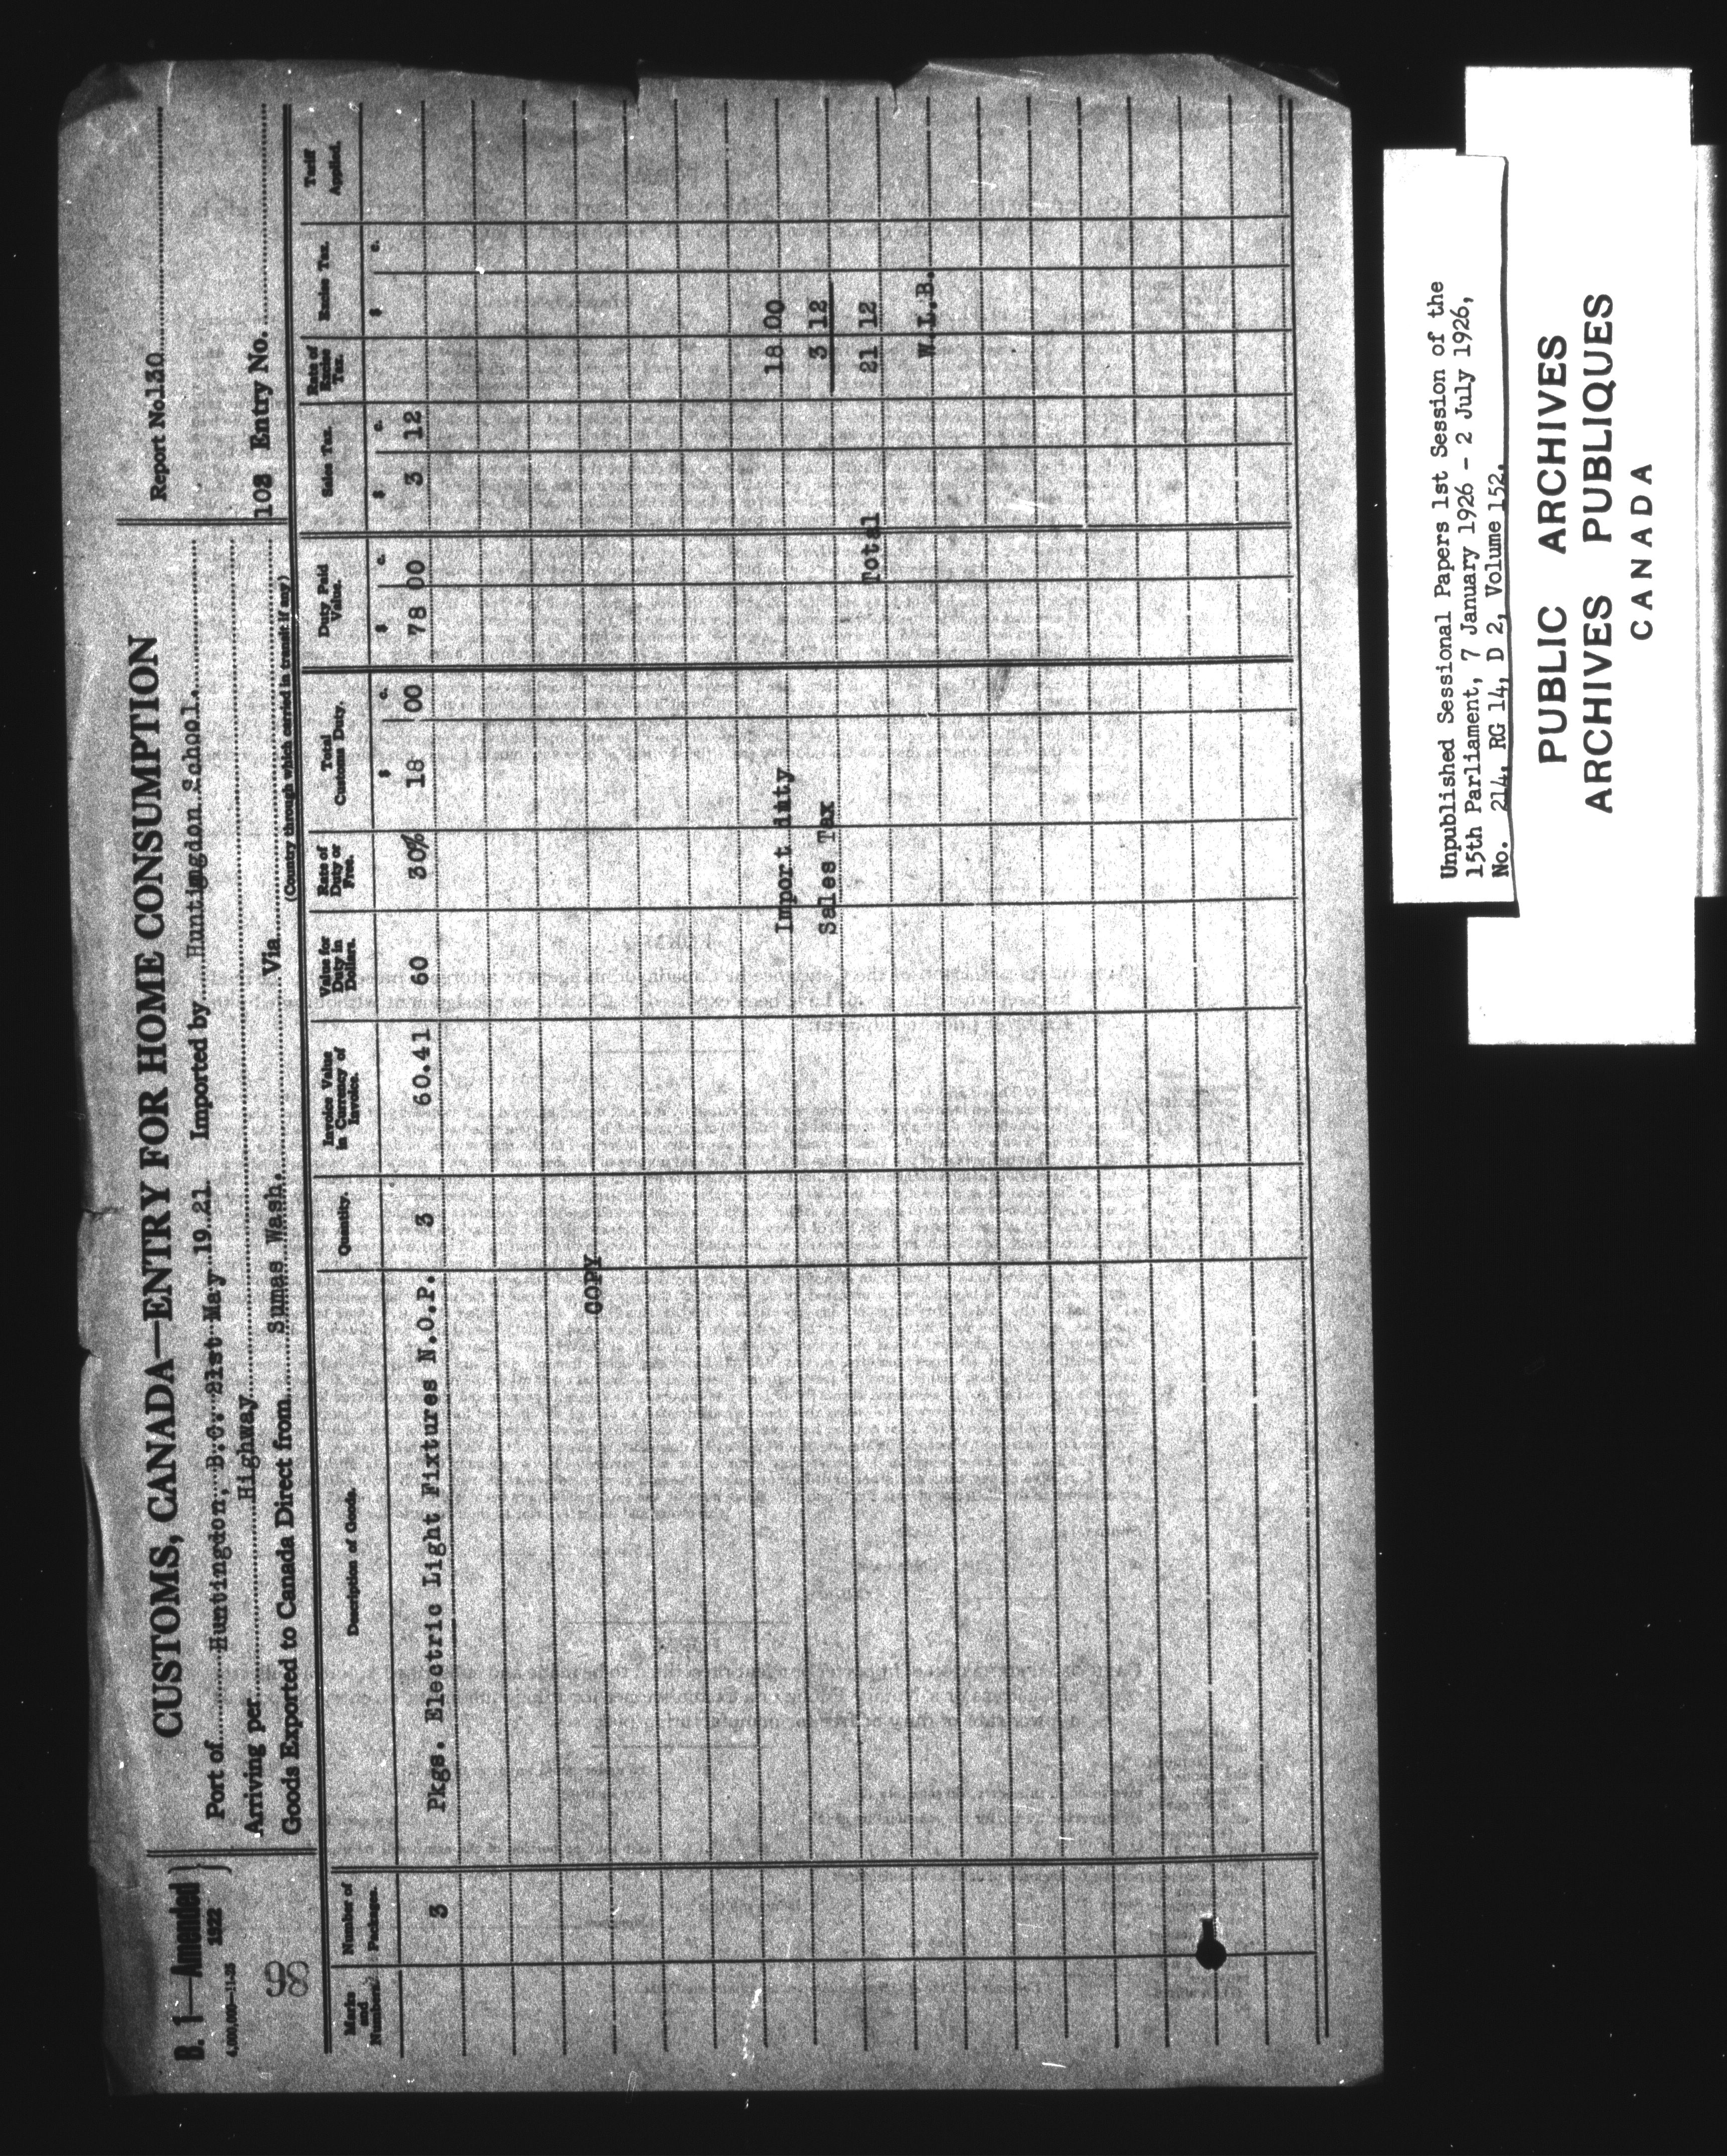 B. 1—Amended
1922
4,000,000—11-25
98
CUSTOMS, CANADA—ENTRY FOR HOME CONSUMPTION
Report No. 130
Port of Huntingdon, B.C. 21st May 19 21 Imported by Huntingdon School.
Arriving per Highway
108 Entry No.
Goods Exported to Canada Direct from Sumas Wash. Via
(Country through which carried in transit if any)
Marks and Numbers. Number of Packages. Description of Goods. Quantity. Invoice Value in Currency of Invoice. Value for Duty in Dollars. Rate of Duty or Free. Total Customs Duty. Duty Paid Value. Sales Tax. Rate of Excise Tax. Excise Tax. Tariff Applied.
$ c. $ c. $ c. $ c.
3 Pkgs. Electric Light Fixtures N.O.P. 3 60.41 60 30% 18 00 78 00 3 12
COPY
Import duty 18 00
Sales Tax 3 12
Total 21 12
W.L.B.
Unpublished Sessional Papers 1st Session of the
15th Parliament, 7 January 1926 - 2 July 1926,
No. 214, RG 14, D 2, Volume 152.
PUBLIC ARCHIVES
ARCHIVES PUBLIQUES
CANADA